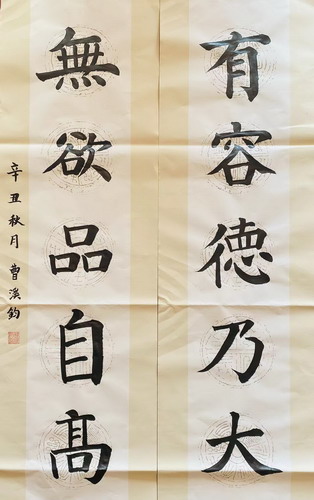 有容德乃大
無欲品自高
辛丑秋月 曹溪鈞